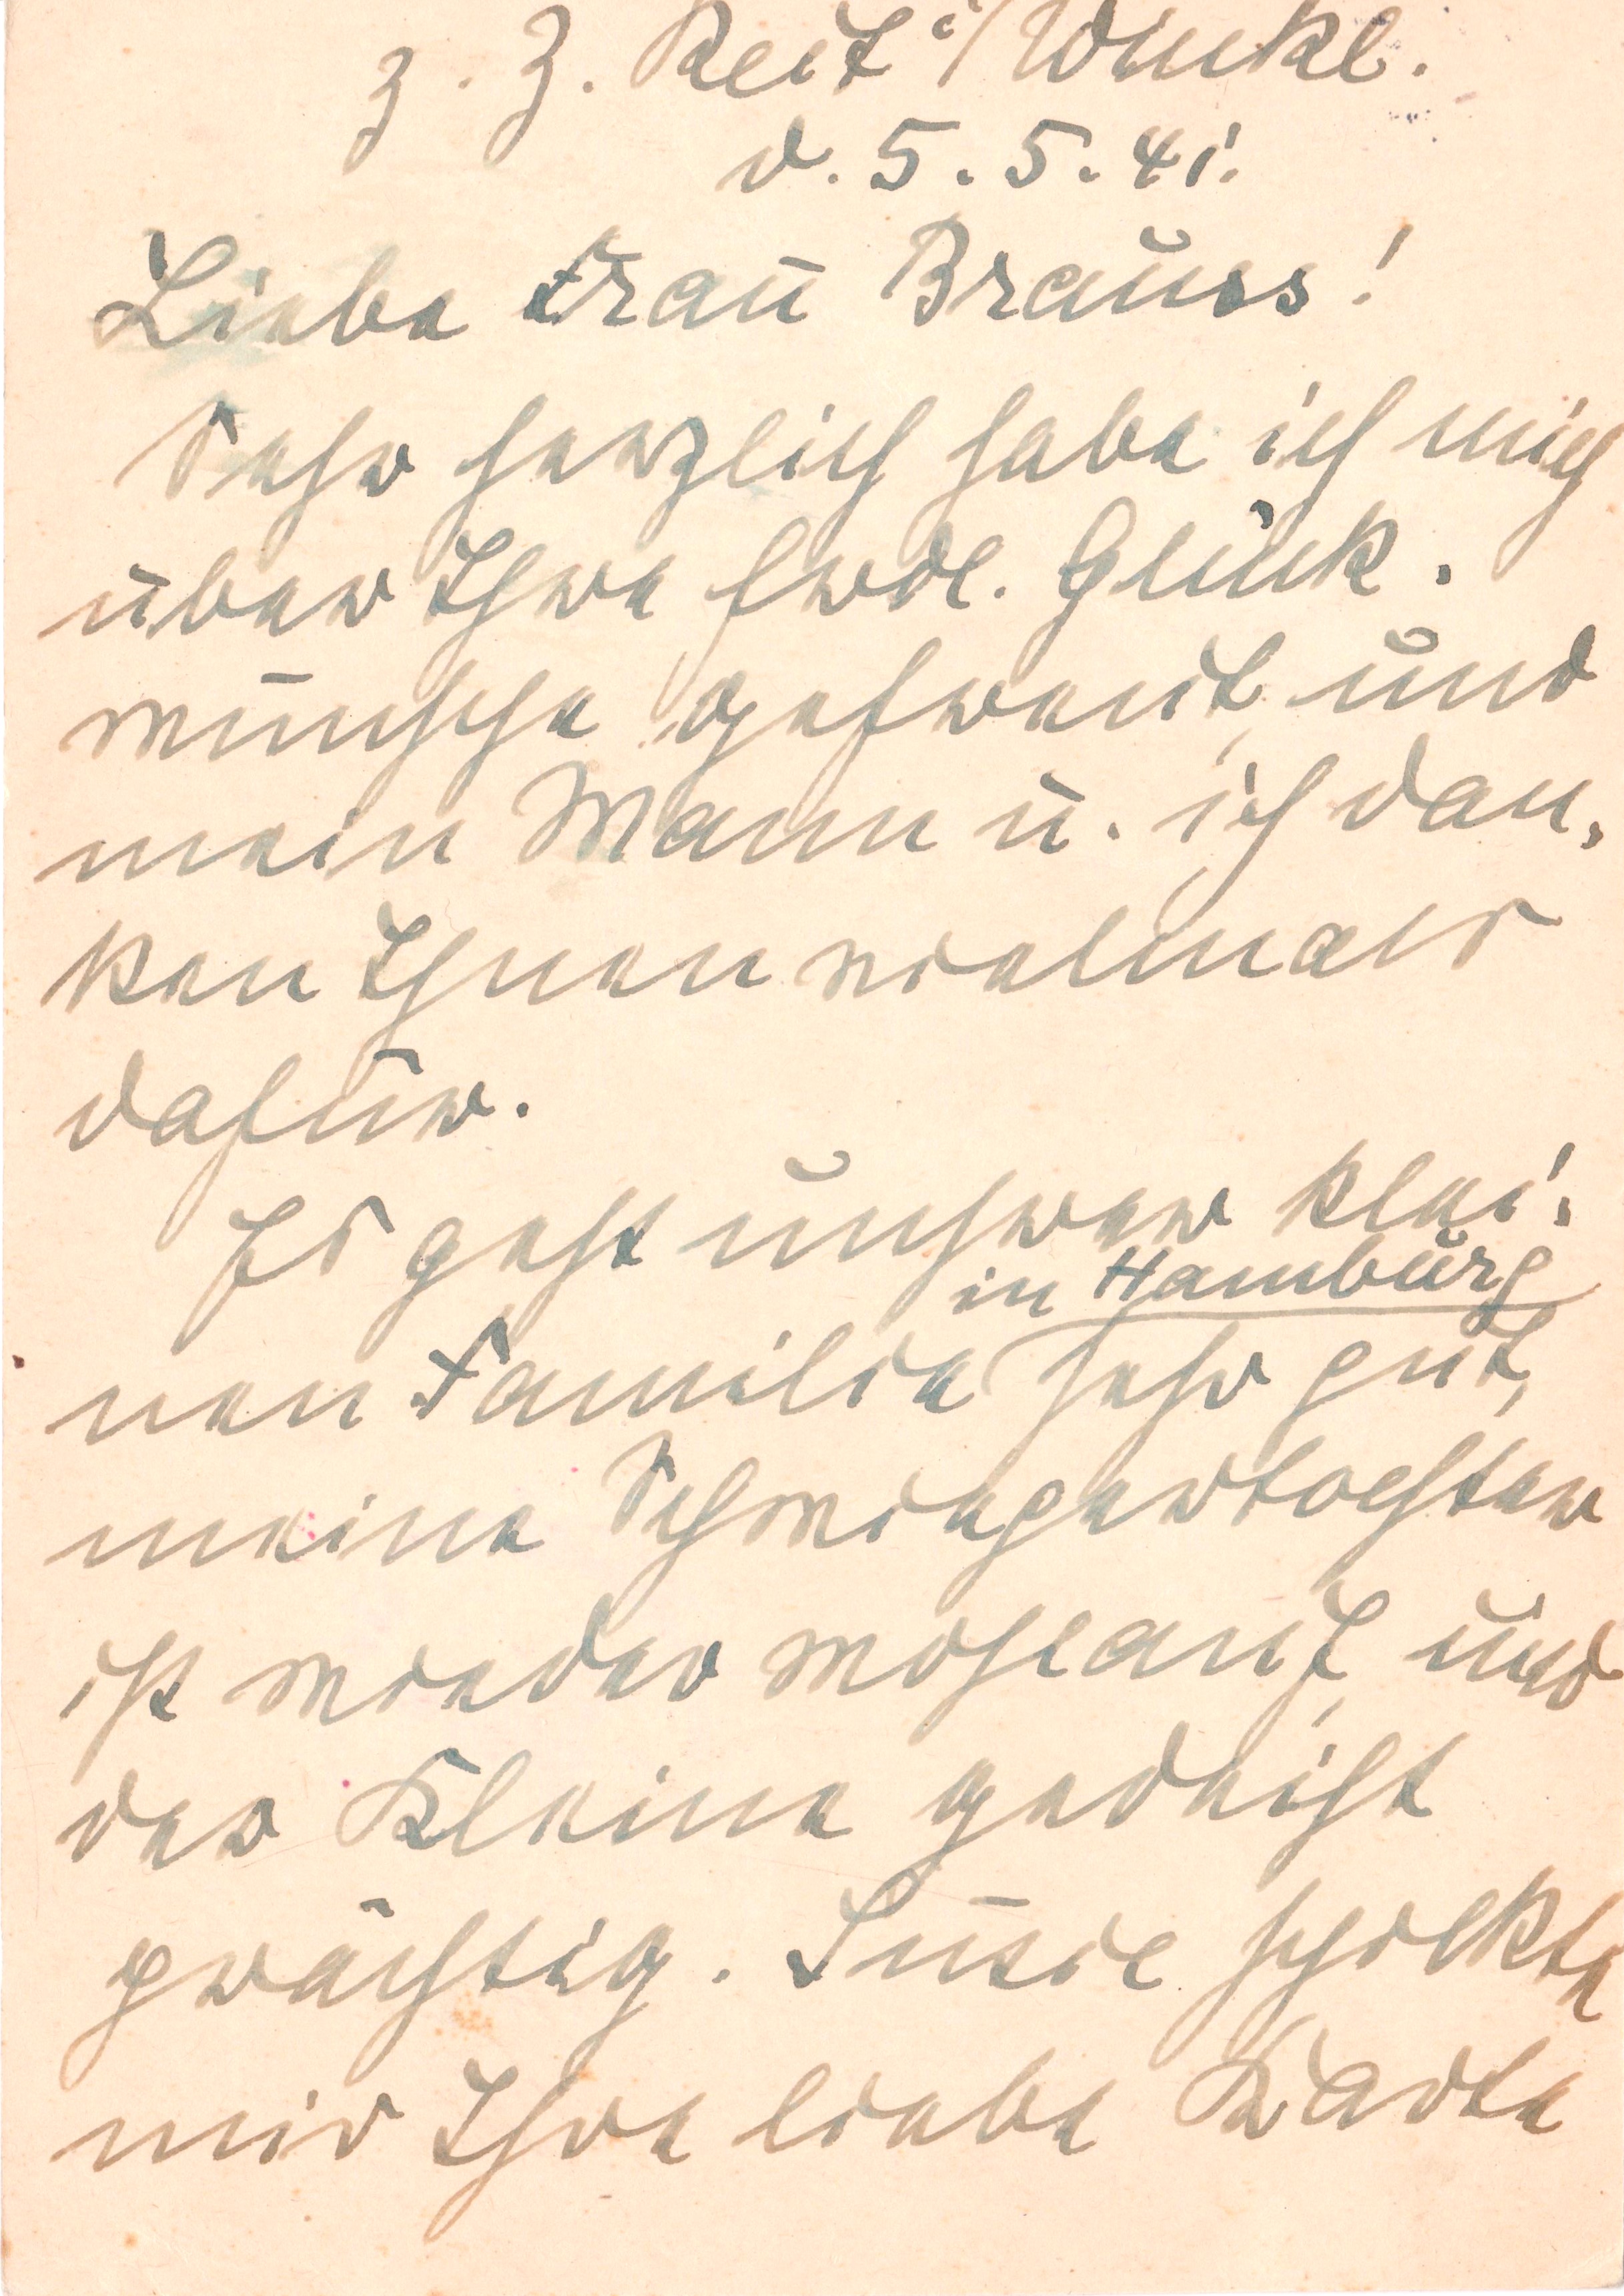 z. Z. Reit i/Winkl.
d. 5. 5. 41.
Liebe Frau Brauss!
Sehr herzlich habe ich mich
über Ihre frdl. Glück-
wünsche gefreut, und
mein Mann u. ich dan-
ken Ihnen vielmals
dafür.
Es geht unsrer klei-
in Hamburg
nen Familie sehr gut,
meine Schwiegertochter
ist wieder wohlauf, und
der Kleine gedeiht
prächtig. Susie schickte
mir Ihre liebe Karte